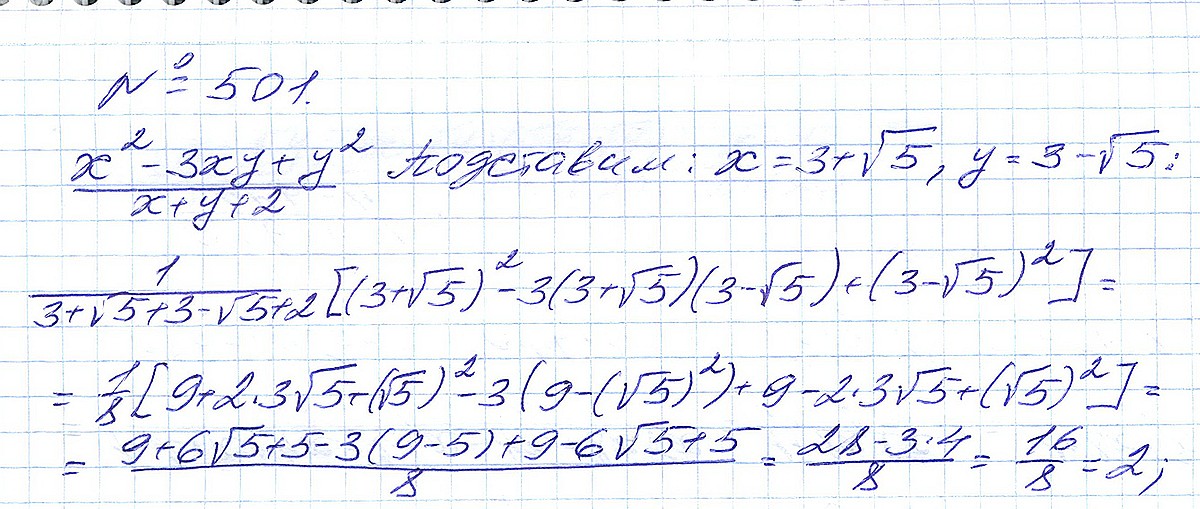 № 501.
x² - 3xy + y² / x + y + 2 подставим: x = 3 + √5, y = 3 - √5:
1 / 3 + √5 + 3 - √5 + 2 [(3 + √5)² - 3(3 + √5)(3 - √5) + (3 - √5)²] =
= 1/8 [9 + 2·3√5 + (√5)² - 3(9 - (√5)²) + 9 - 2·3√5 + (√5)²] =
= 9 + 6√5 + 5 - 3(9 - 5) + 9 - 6√5 + 5 / 8 = 28 - 3·4 / 8 = 16 / 8 = 2;